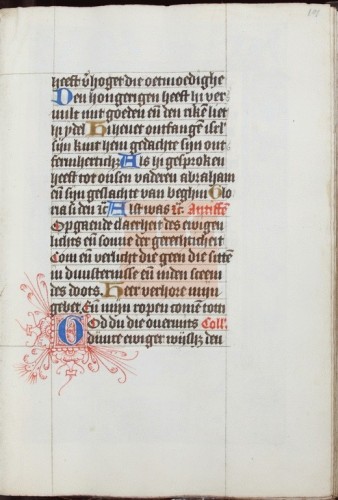 heeft v̄hoget die oetmoedighe
Den hongerigen heeft hi ver
vult mit goeden en̄ den riken liet
hi ydel Hi hevet ontfangen isr̄l
sijn kint hem gedachte sijn ont
fermherticħ Als hi gesproken
heeft tot onsen vaderen abraham
en̄ sijn geslachte van beghin Glo
ria si den Als was Antiffē
Opgaende claerheit des ewigen
lichts en̄ sonne der gerechticheit
Com en̄ verlicht die geen die sittē
in duusternisse en̄ inden sceem
des doots. Heer verhore mijn
gebet. En̄ mijn ropen comē tot ti
God du die overmits Coll'
dijnre ewiger wijsħz den